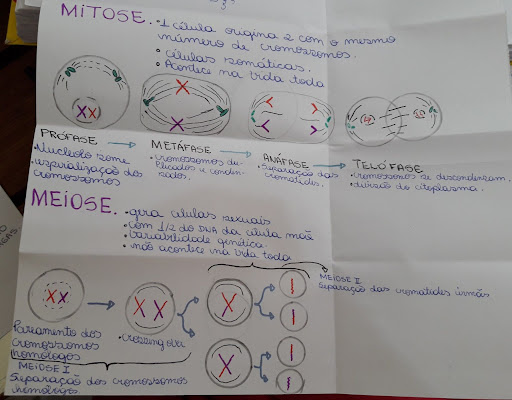 MITOSE.
• 1 célula origina 2 com o mesmo
número de cromossomos.
• células somáticas.
• Acontece na vida toda
PRÓFASE
• Nucléolo some
• espiralização dos
cromossomos
METÁFASE
• cromossomos du-
plicados e conden-
sados.
ANÁFASE
• Separação das
cromátides.
TELÓFASE
• cromossomos se descondensam.
• divisão do citoplasma.
MEIOSE.
• gera células sexuais
• com 1/2 do DNA da célula mãe
• Variabilidade genética.
• não acontece na vida toda
MEIOSE II
Separação das cromátides irmãs
Pareamento dos
cromossomos
homólogos
• crossing over
MEIOSE I
Separação dos cromossomos
homólogos.